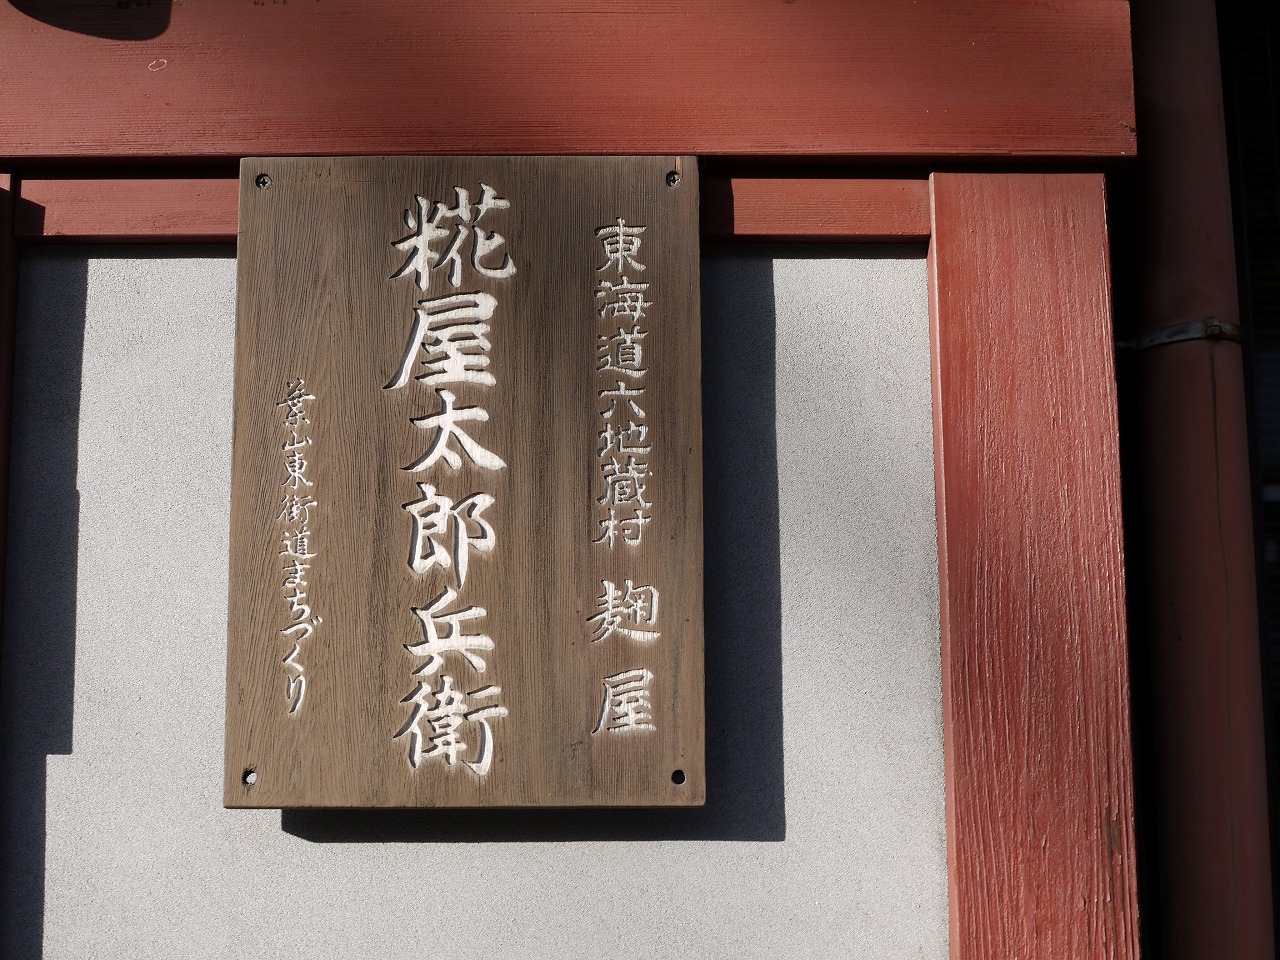 東海道六地蔵村 麹屋
糀屋太郎兵衛
葉山東街道まちづくり